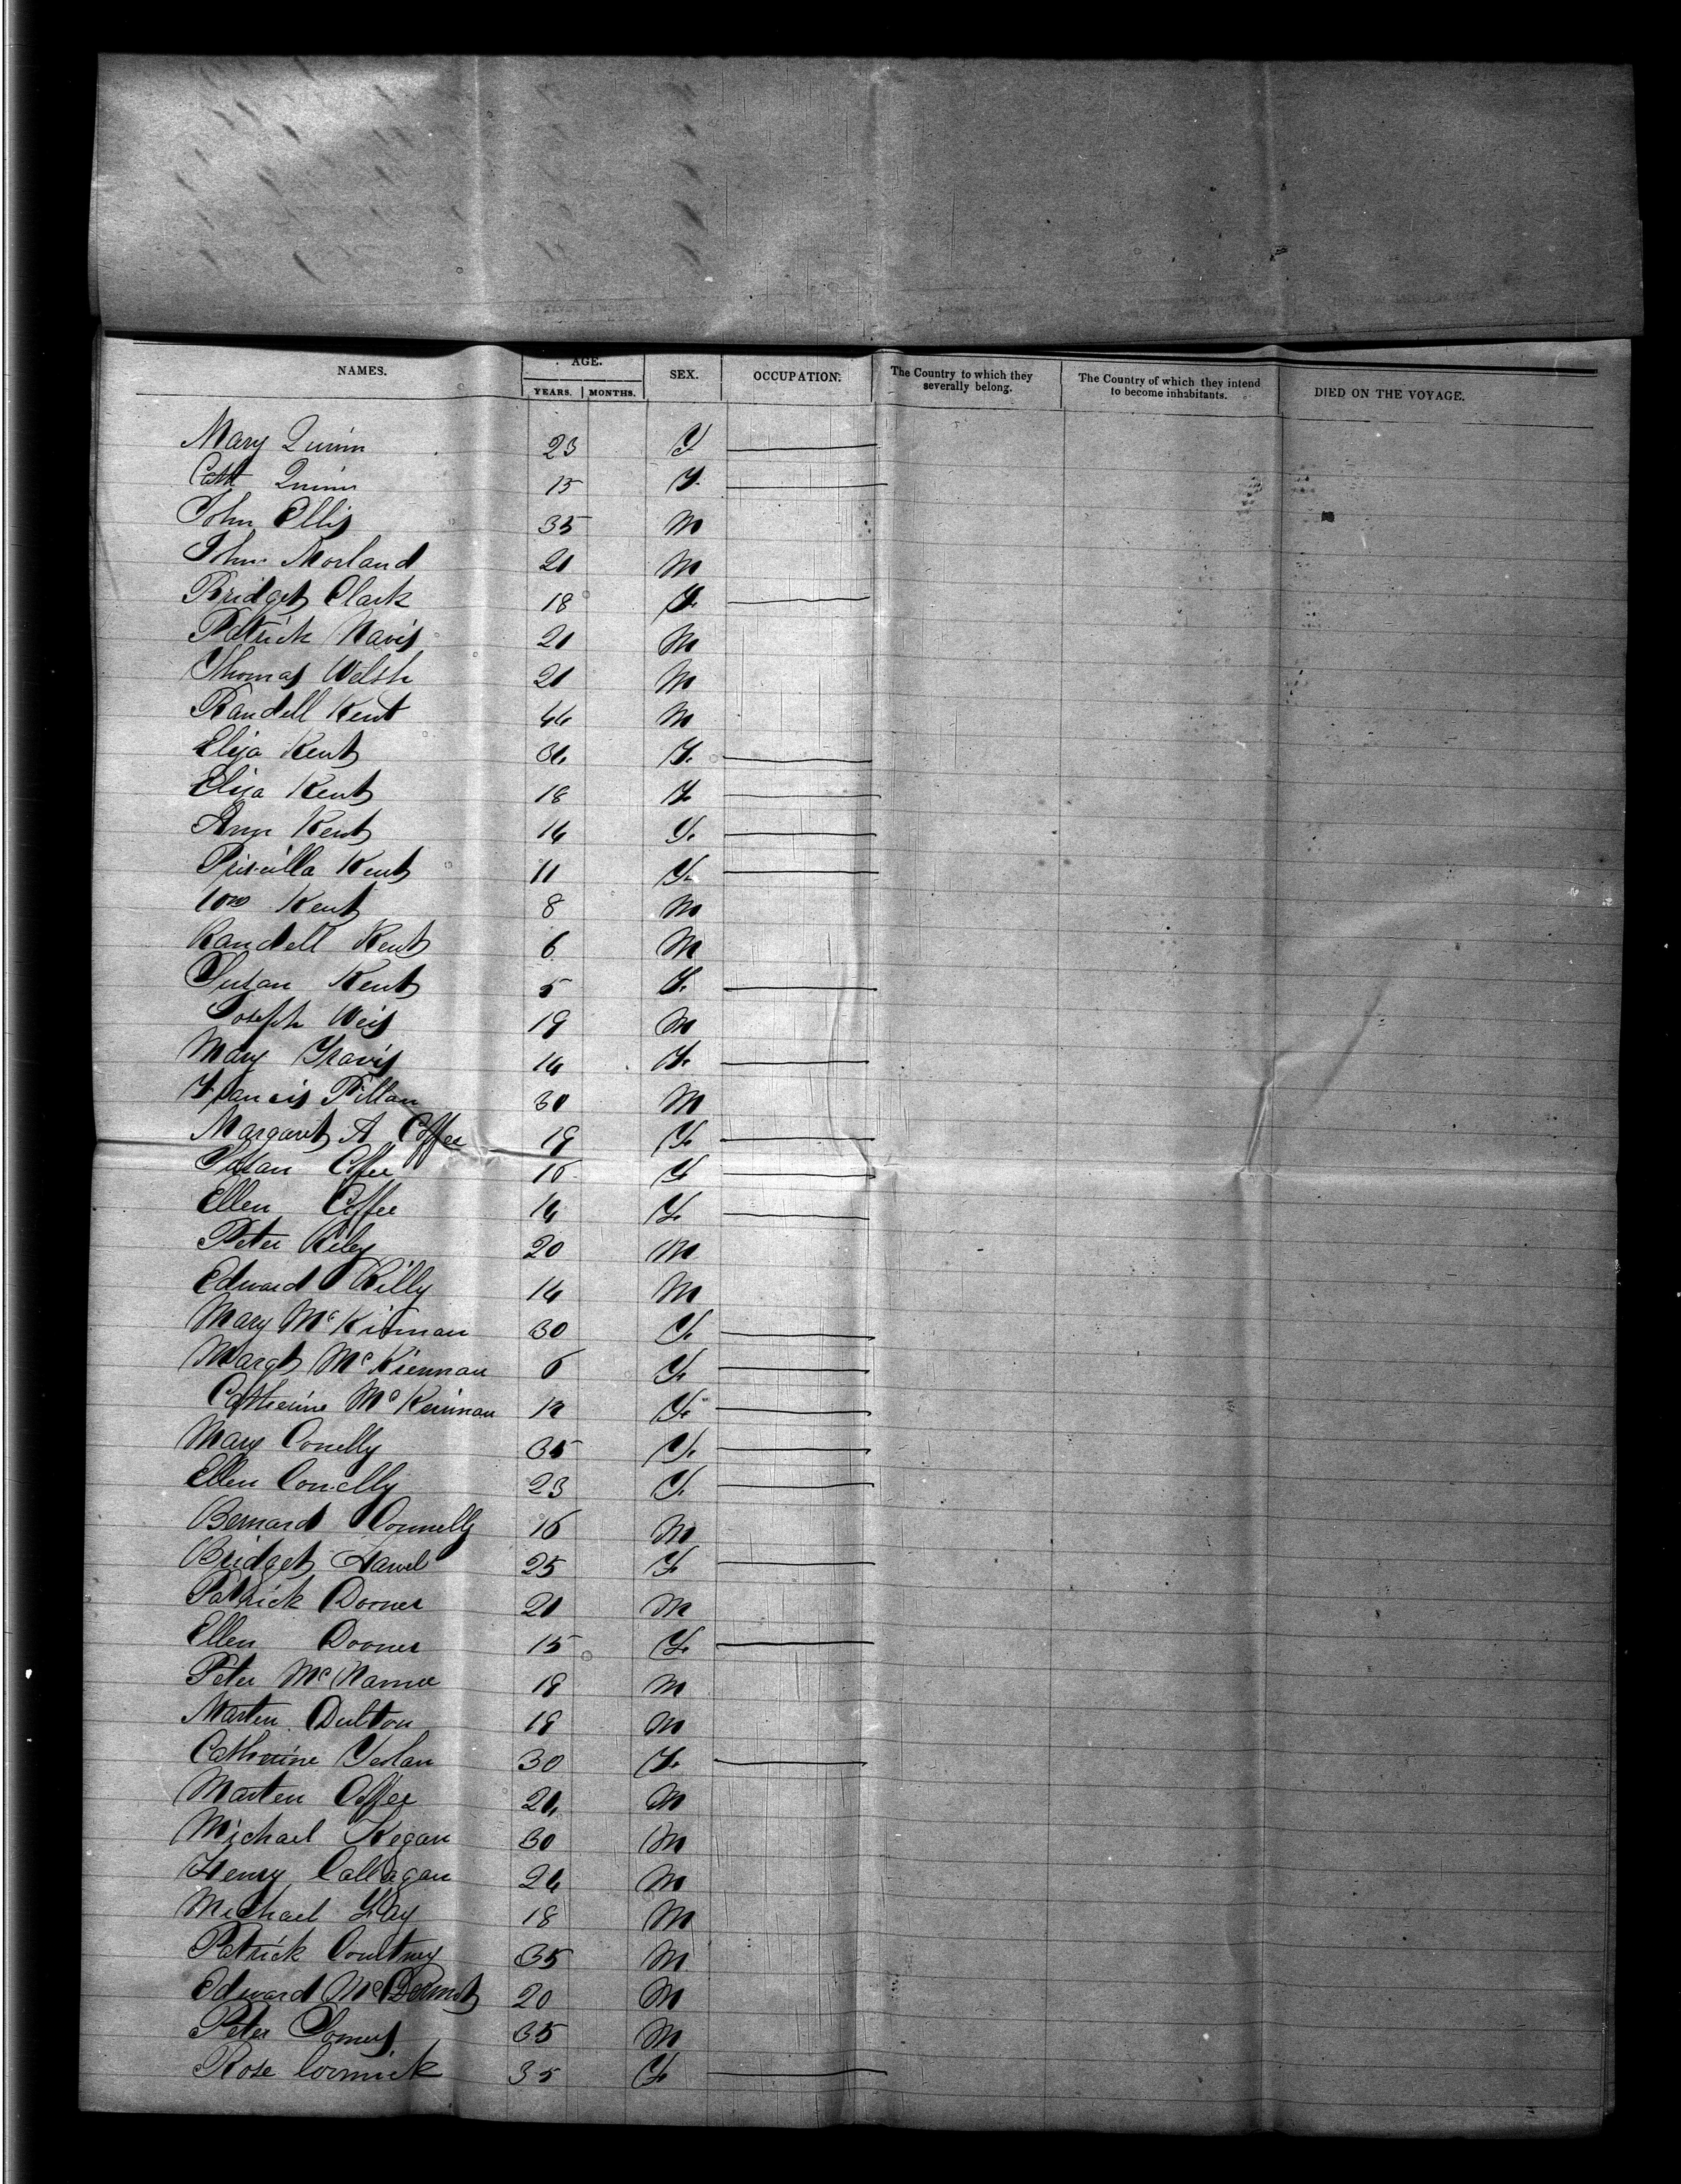 NAMES. AGE. SEX. OCCUPATION. The Country to which they severally belong. The Country of which they intend to become inhabitants. DIED ON THE VOYAGE.
YEARS. MONTHS.
Mary Quinn 23 F
Cath Quinn 15 F.
John Ellis 35 M
John Morland 21 M
Bridget Clark 18 F.
Patrick Navis 21 M
Thomas Welsh 21 M
Randell Kent 44 M
Eliza Kent 34 F.
Eliza Kent 18 F
Ann Kent 14 F.
Priscilla Kent 11 F.
Wm Kent 8 M
Randell Kent 6 M
Susan Kent 5 F.
Joseph Weis 19 M
Mary Travis 14 F.
Francis Pillan 30 M
Margaret A Coffee 19 F.
Susan Coffee 16 F
Ellen Coffee 14 F.
Peter Riley 20 M
Edward Rilly 14 M
Mary McKiernan 30 F.
Margt McKiernan 6 F.
Catherine McKeirnan F.
Mary Conelly 35 F.
Ellen Conelly 23 F.
Bernard Connelly 16 M
Bridget 25 F.
Patrick Dooner 21 M
Ellen Dooner 15 F.
Peter McNamee 19 M
Marten Dulton 19 M
Catherine 30 F.
Marten Coffee 24 M
Michael Kegan 30 M
Henry Callagan 24 M
Michael 18 M
Patrick Courtney 35 M
Edward McDermot 20 M
Peter Somers 35 M
Rose Cormick 35 F.